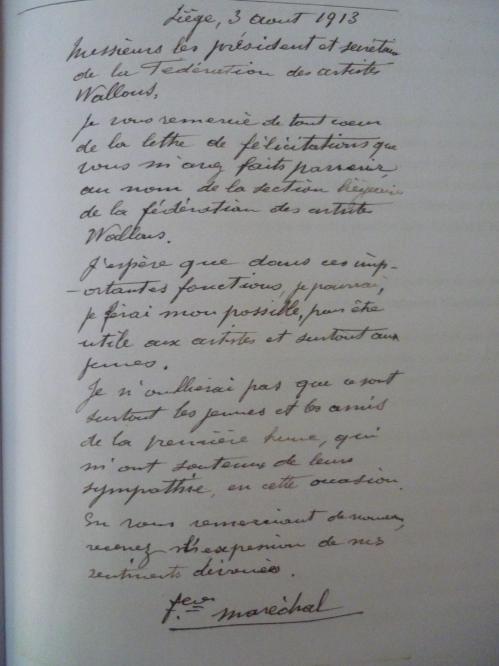 Liège, 3 aout 1913
Messieurs les président et secrétaire
de la Fédération des artistes
Wallons,
Je vous remercie de tout coeur
de la lettre de félicitations que
vous m'avez faits parvenir,
au nom de la section liégeoise
de la fédération des artistes
Wallons.
J'espère que dans ces imp-
-ortantes fonctions, je pourrai,
je ferai mon possible, pour être
utile aux artistes et surtout aux
jeunes.
Je n'oublierai pas que ce sont
surtout les jeunes et les amis
de la première heure, qui
m'ont soutenu de leurs
sympathie, en cette occasion.
En vous remerciant de nouveau,
recevez l'expression de mes
sentiments dévoués.
maréchal